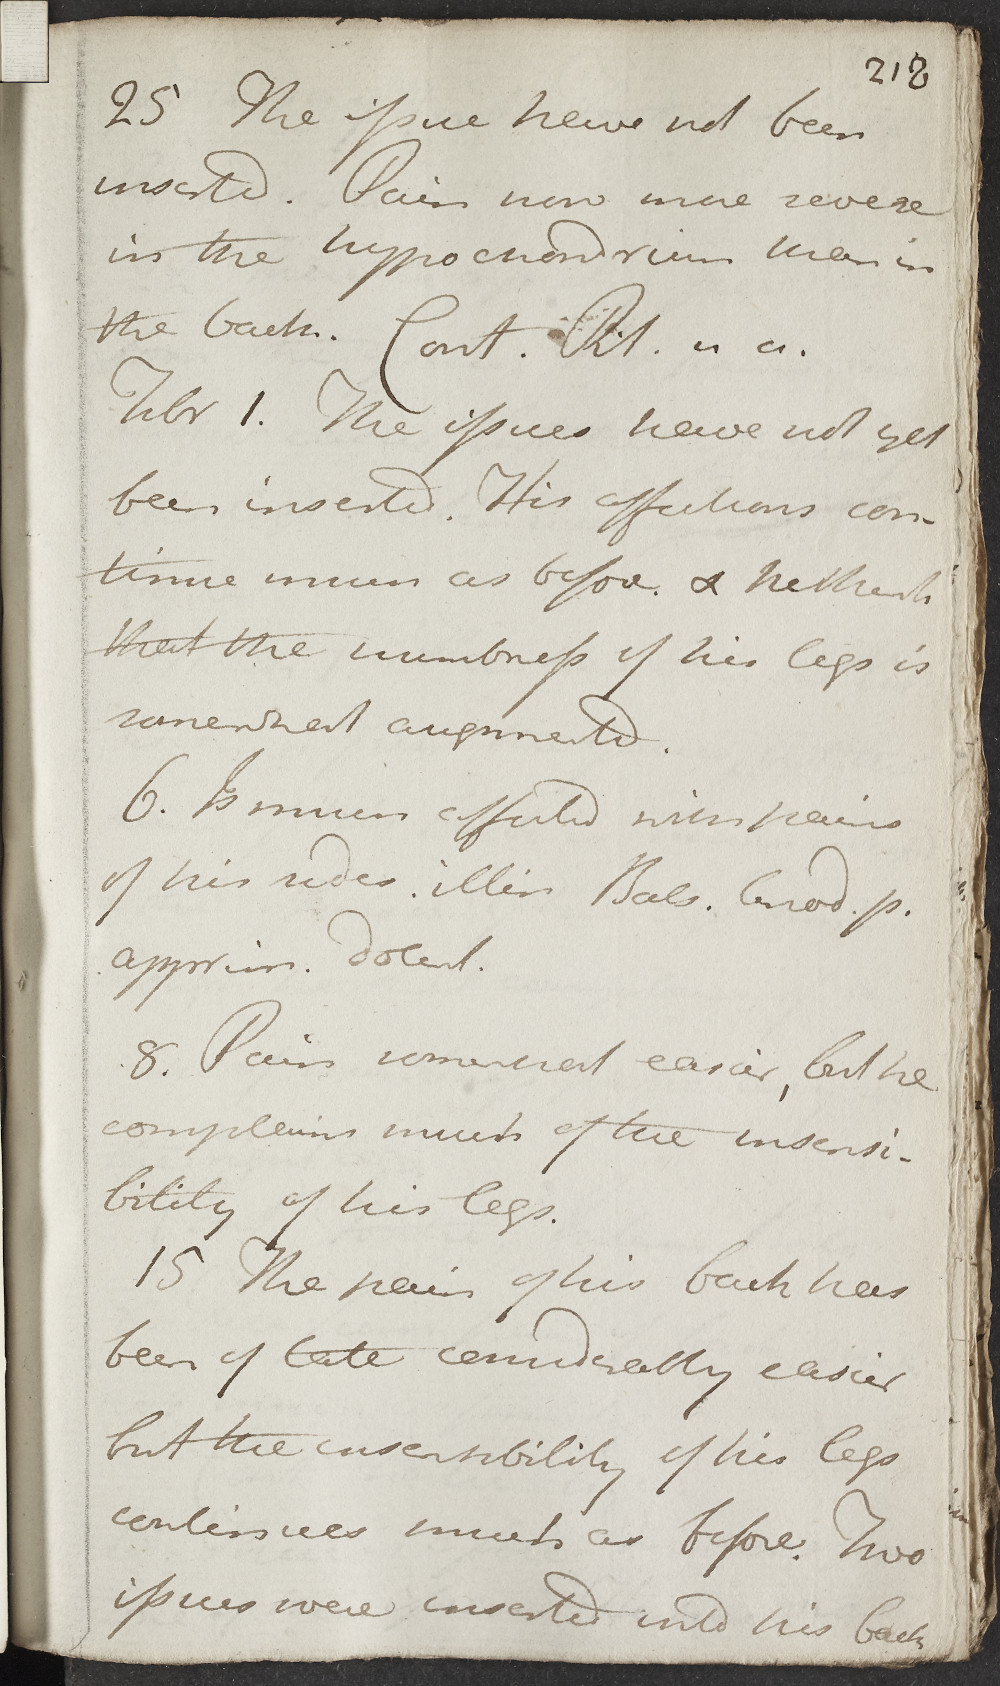 218
25 The issue have not been
inserted. Pain now more severe
in the hypochondrium than in
the back. Cont. Pil. u a.
Febr 1. The issues have not yet
been inserted. His affections con-
tinue much as before. & he thinks
that the numbness of his legs is
somewhat augmented.
6. Is much affected with pains
of his sides. illin Bals. Anod. p.
apprim. dolent.
8. Pain somewhat easier, but he
complains much of the insensi-
bility of his legs.
15 The pain of his back has
been of late considerably easier
but the insensibility of his legs
continues much as before. Two
issues were inserted into his back